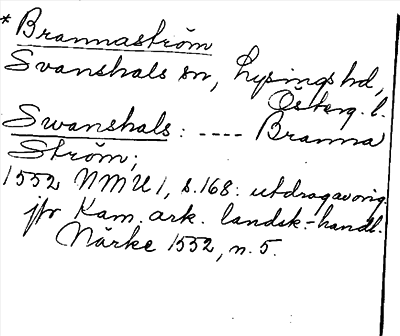 * Brannaström
Svanshals sn, Lysings hd,
Österg. l.
Swanshals: ---- Branna
Ström;
1552 NMU 1, s. 168. utdrag av orig.
jfr Kam. ark. landsk.-handl.
Närke 1552, n. 5.